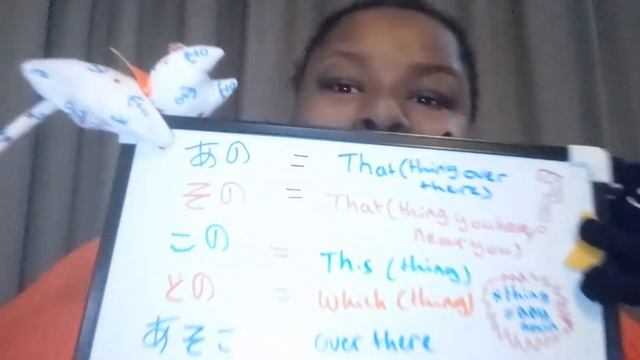 あの = That (thing over there)
その = That (thing you have near you)
この = This (thing)
どの = Which (thing)
あそこ over there
*thing
= any
noun